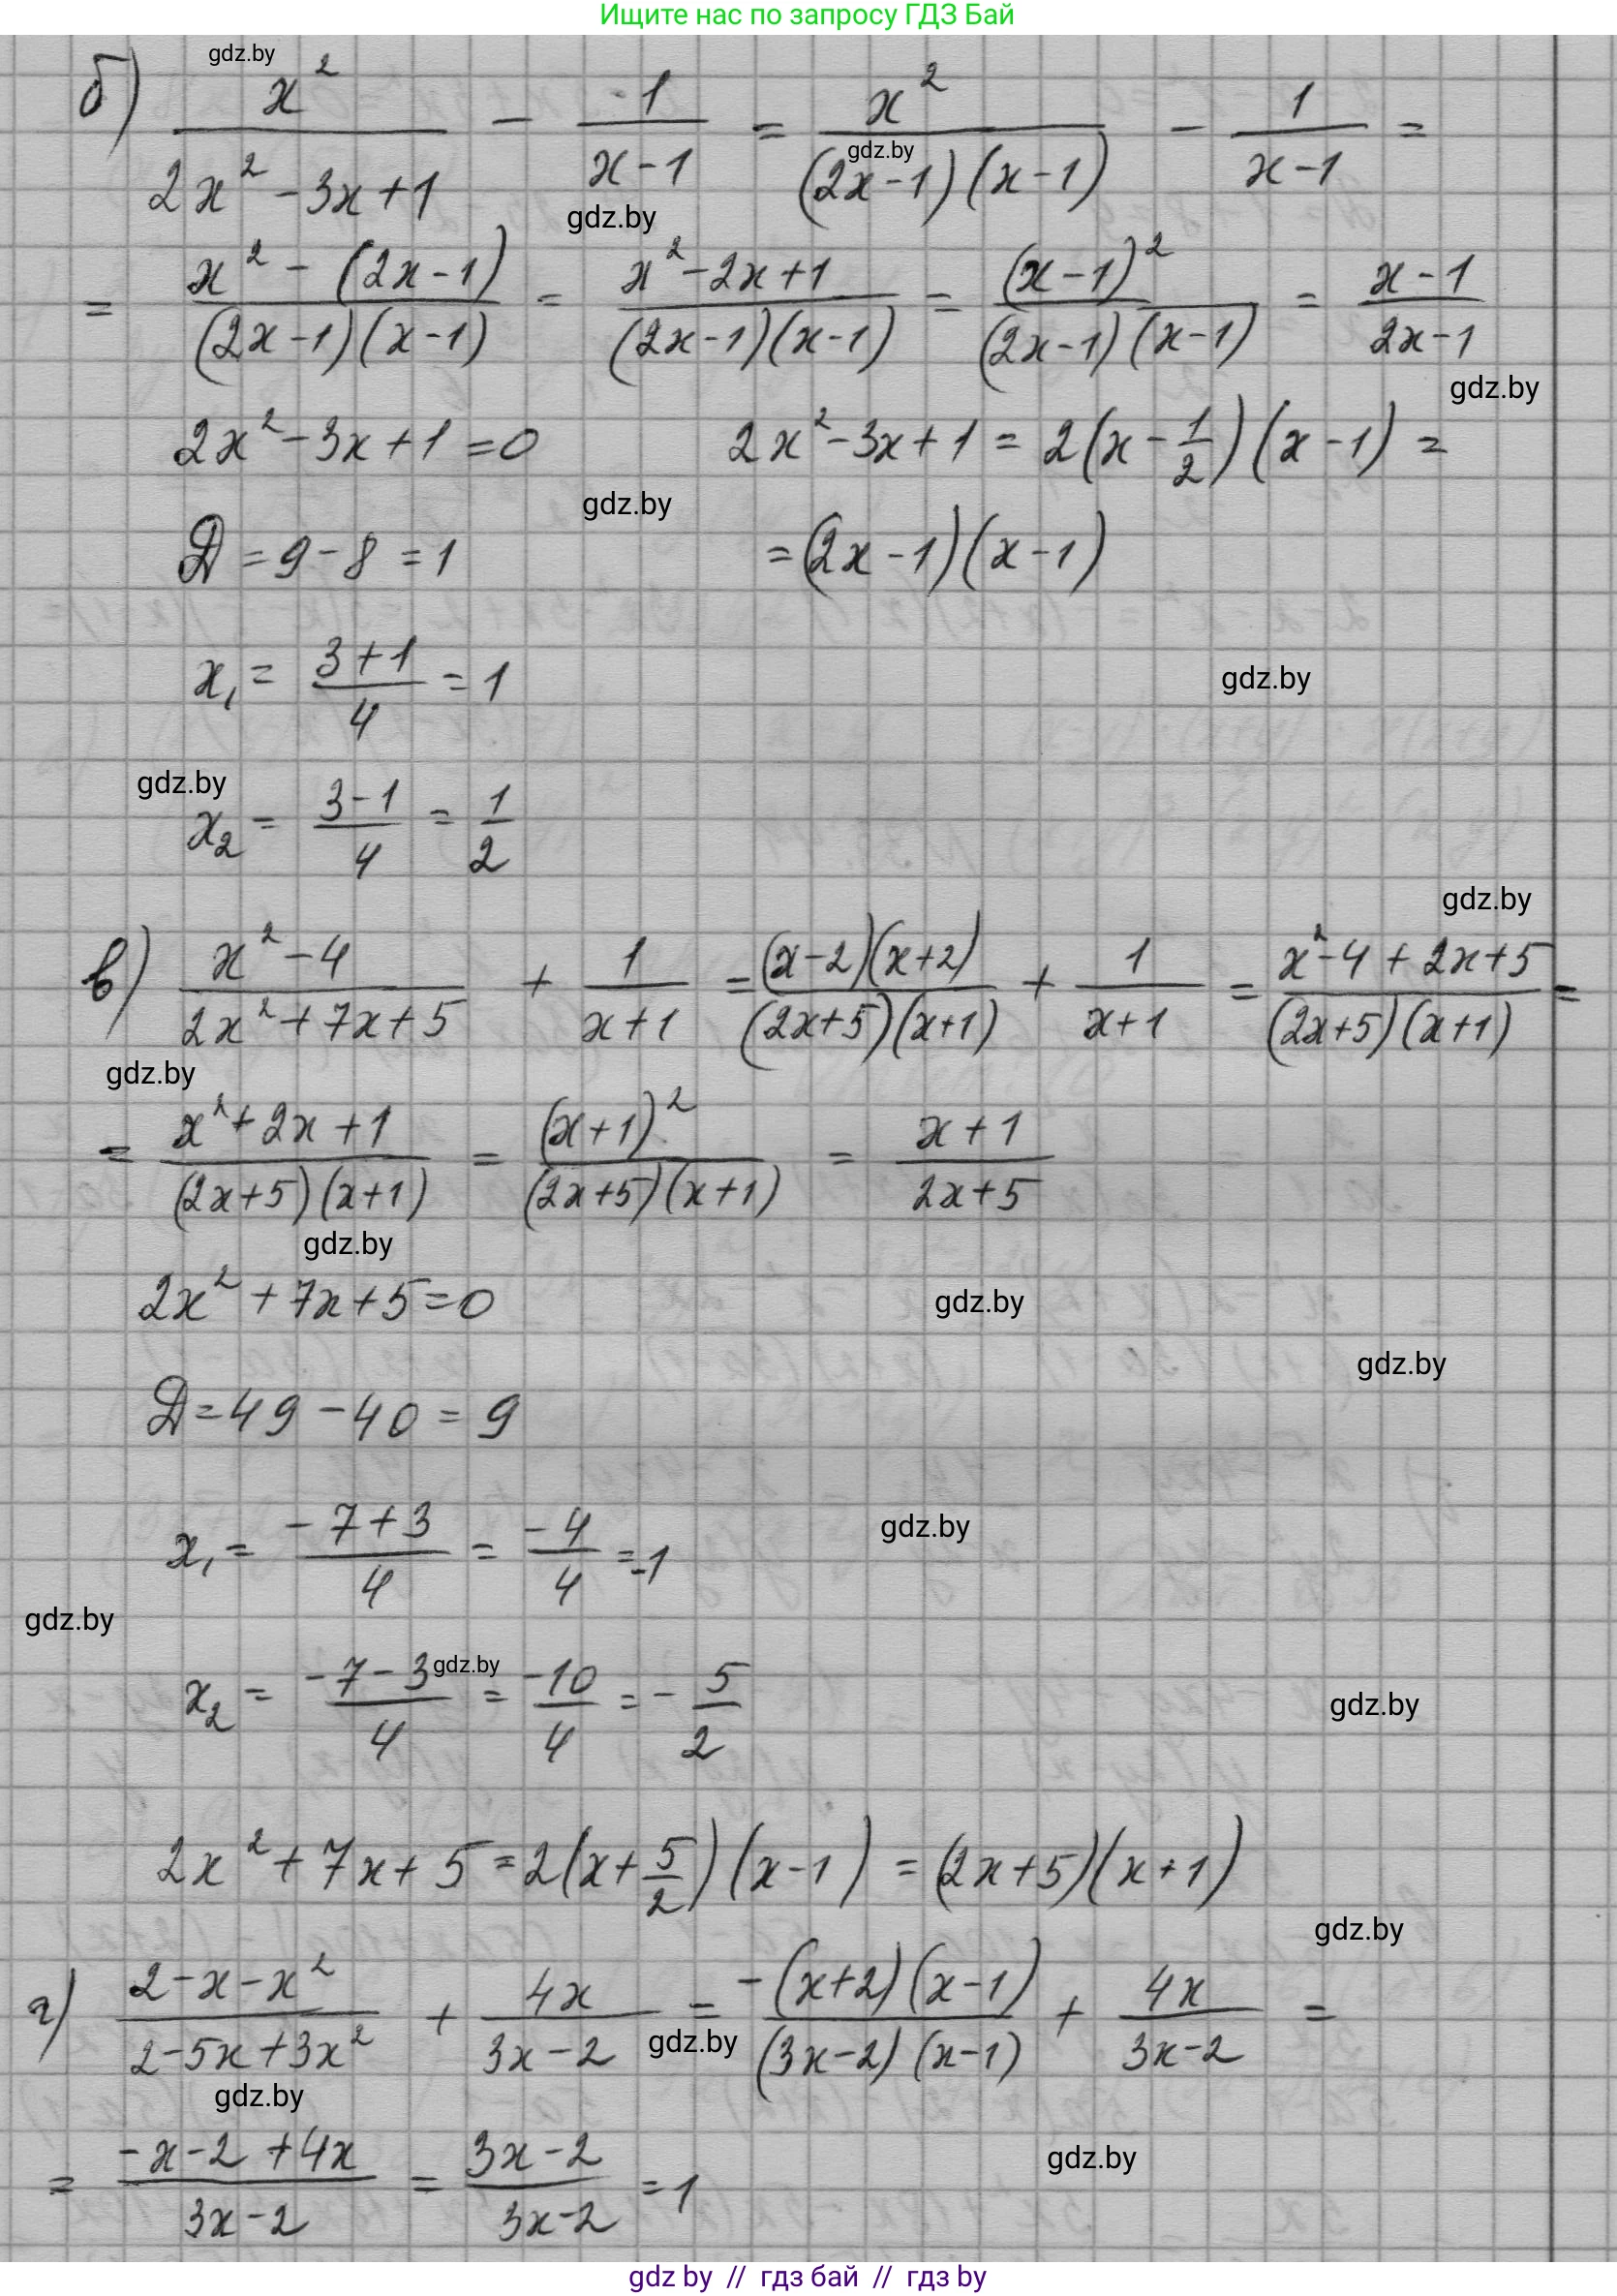 Ищите нас по запросу ГДЗ Бай
gdz.by
б) x²/(2x²-3x+1) - 1/(x-1) = x²/((2x-1)(x-1)) - 1/(x-1) =
gdz.by
gdz.by
= (x²-(2x-1))/((2x-1)(x-1)) = (x²-2x+1)/((2x-1)(x-1)) = (x-1)²/((2x-1)(x-1)) = (x-1)/(2x-1)
gdz.by
2x²-3x+1=0 2x²-3x+1 = 2(x-1/2)(x-1) =
gdz.by
Д=9-8=1 =(2x-1)(x-1)
x₁ = (3+1)/4 = 1
gdz.by
gdz.by
x₂ = (3-1)/4 = 1/2
gdz.by
в) (x²-4)/(2x²+7x+5) + 1/(x+1) = (x-2)(x+2)/((2x+5)(x+1)) + 1/(x+1) = (x²-4+2x+5)/((2x+5)(x+1)) =
gdz.by
= (x²+2x+1)/((2x+5)(x+1)) = (x+1)²/((2x+5)(x+1)) = (x+1)/(2x+5)
gdz.by
2x²+7x+5=0
gdz.by
gdz.by
Д=49-40=9
x₁ = (-7+3)/4 = -4/4 = -1
gdz.by
gdz.by
x₂ = (-7-3)/4 = -10/4 = -5/2
gdz.by
gdz.by
2x²+7x+5=2(x+5/2)(x-1) = (2x+5)(x+1)
gdz.by
г) (2-x-x²)/(2-5x+3x²) + 4x/(3x-2) = -(x+2)(x-1)/((3x-2)(x-1)) + 4x/(3x-2) =
gdz.by
gdz.by
= (-x-2+4x)/(3x-2) = (3x-2)/(3x-2) = 1
gdz.by
gdz by // гдз бай // гдз by